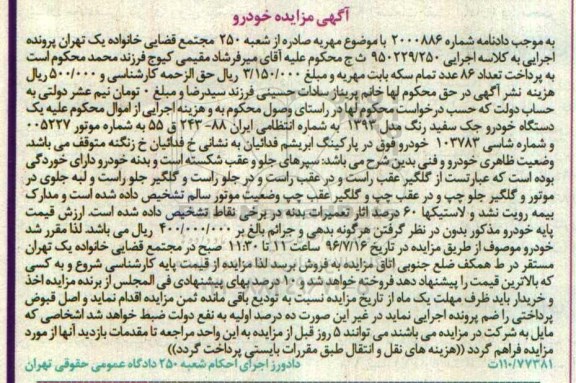 آگهی مزایده خودرو
به موجب دادنامه شماره ۲۰۰۰۸۸۶ با موضوع مهریه صادره از شعبه ۲۵۰ مجتمع قضایی خانواده یک تهران پرونده
اجرایی به کلاسه اجرایی ۹۵۰۲۲۹/۲۵۰ ث ج محکوم علیه آقای میرفرشاد مقیمی کیوج فرزند محمد محکوم است
به پرداخت تعداد ۸۶ عدد تمام سکه بابت مهریه و مبلغ ۳/۱۵۰/۰۰۰ ریال حق الزحمه کارشناسی و ۵۰۰/۰۰۰ ریال
هزینه نشر آگهی در حق محکوم لها خانم پریناز سادات حسینی فرزند سیدرضا و مبلغ ۰ تومان نیم عشر دولتی به
حساب دولت که حسب درخواست محکوم لها در راستای وصول محکوم به و هزینه اجرایی از اموال محکوم علیه یک
دستگاه خودرو جک سفید رنگ مدل ۱۳۹۳ به شماره انتظامی ایران ۸۸- ۲۴۳ ق ۵۵ به شماره موتور ۰۰۵۲۲۷
و شماره شاسی ۱۰۳۷۸۳ خودرو فوق در پارکینگ ابریشم فدائیان به نشانی خ فدائیان خ زنگنه متوقف می باشد.
وضعیت ظاهری خودرو و فنی بدین شرح می باشد: سپرهای جلو و عقب شکسته است و بدنه خودرو دارای خوردگی
بوده است که عبارتست از گلگیر عقب راست و در عقب راست و در جلو راست و گلگیر جلو راست و لبه جلوی در
موتور و گلگیر جلو چپ و در عقب چپ و گلگیر عقب چپ وضعیت موتور سالم تشخیص داده شده است و مدارک
بیمه رویت نشد و لاستیکها ۶۰ درصد آثار تعمیرات بدنه در برخی نقاط تشخیص داده شده است. ارزش قیمت
پایه خودرو مذکور بدون در نظر گرفتن هرگونه بدهی و جرائم بالغ بر ۴۰۰/۰۰۰/۰۰۰ ریال می باشد. لذا مقرر شد
خودرو موصوف از طریق مزایده در تاریخ ۹۶/۷/۱۶ ساعت ۱۱ تا ۱۱:۳۰ صبح در مجتمع قضایی خانواده یک تهران
مستقر در ط همکف ضلع جنوبی اتاق مزایده به فروش برسد لذا مزایده از قیمت پایه کارشناسی شروع و به کسی
که بالاترین قیمت را پیشنهاد دهد فروخته خواهد شد. ۱۰ درصد بهای پیشنهادی فی المجلس از برنده مزایده اخذ
و خریدار باید ظرف مهلت یک ماه از تاریخ مزایده نسبت به تودیع باقی مانده ثمن مزایده اقدام نماید و اصل قبوض
پرداختی را ضم پرونده اجرایی نماید در غیر این صورت ده درصد اولیه به نفع دولت ضبط خواهد شد اشخاصی که
مایل به شرکت در مزایده می باشند می توانند ۵ روز قبل از مزایده به این واحد مراجعه تا مقدمات بازدید آنها از مورد
مزایده فراهم گردد ((هزینه های نقل و انتقال طبق مقررات بایستی پرداخت گردد))
۱۱۰/۷۷۳۸۱ت دادورز اجرای احکام شعبه ۲۵۰ دادگاه عمومی حقوقی تهران